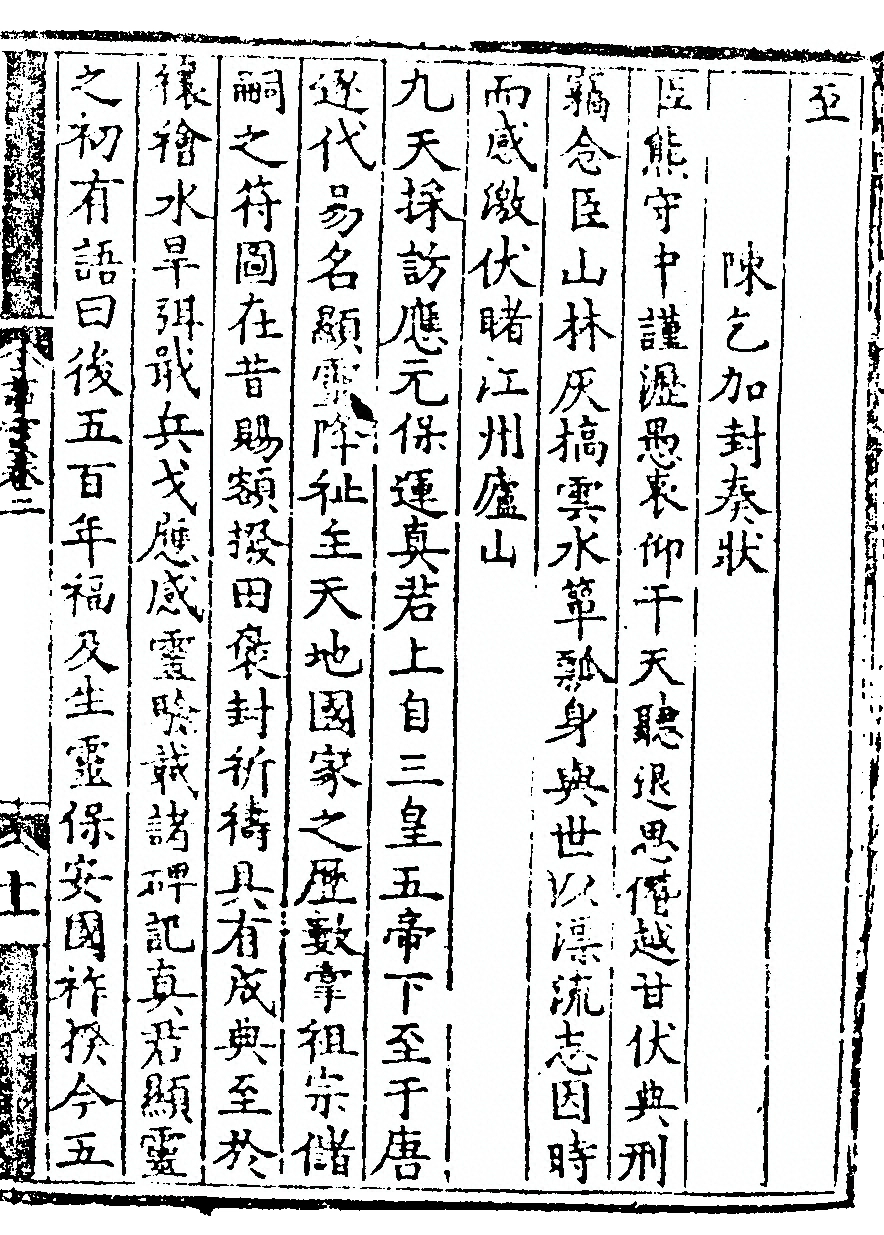 至
陳乞加封奏狀
臣熊守中謹瀝愚衷仰干天聽退思僭越甘伏典刑
竊念臣山林灰槁雲水簞瓢身與世以漂流志因時
而感激伏睹江州廬山
九天採訪應元保運真君上自三皇五帝下至于唐
逐代易名顯靈降祉主天地國家之歷數掌祖宗儲
嗣之符圖在昔賜額撥田褒封祈禱具有成典至於
禳襘水旱弭戢兵戈應感靈驗載諸碑記真君顯靈
之初有語曰後五百年福及生靈保安國祚揆今五
卷二
十